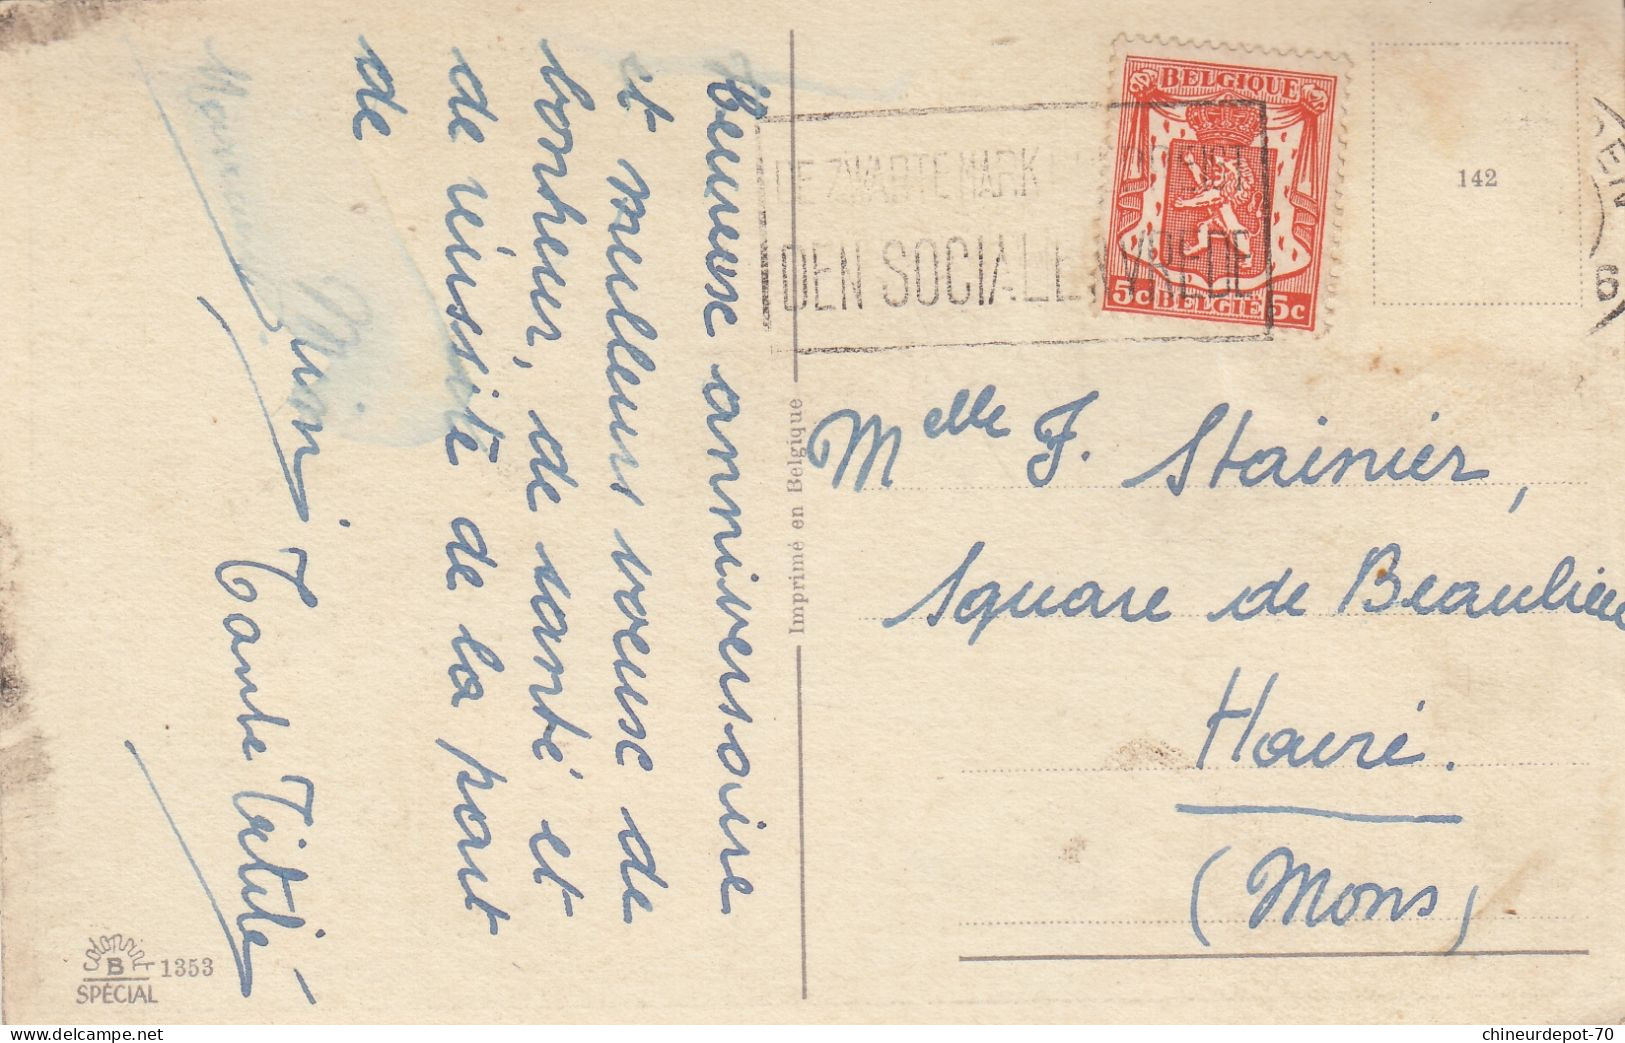 Heureux anniversaire
et meilleurs voeux de
bonheur, de santé et
de réussite de la part
de
Tante Titité
Imprimé en Belgique
B
SPÉCIAL
1353
BELGIQUE
5c BELGIË 5c
DE ZWARTE MARK
DEN SOCIALE
142
6
Melle F. Stainier,
Square de Beaulieu
Havré.
(Mons)
chineurdepot-70